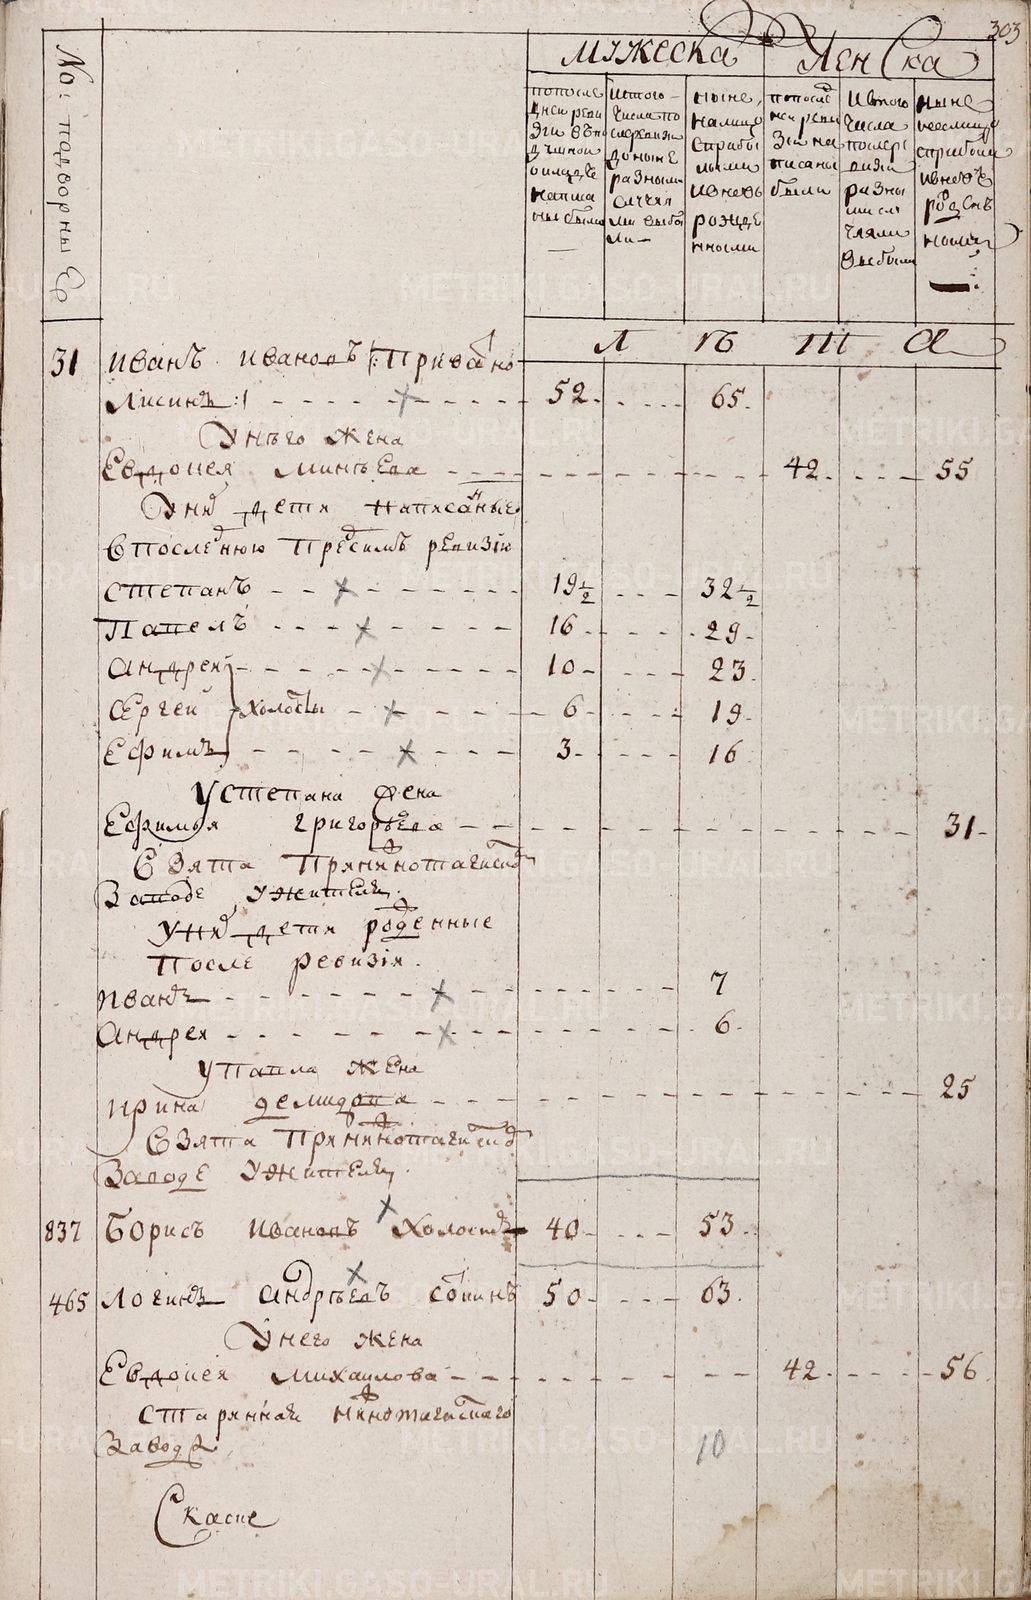 303
мужеска женска
No: подворные
по после
дней реви
зии въпо
душной
окладъ
написа
ны были
ис того
числа по
доныне
разными
случая
ми выбы
ли
ныне
на лицо
с прибы
лыми
и вновь
рожде
нными
по после
ней реви
зии на
писаны
были
ис того
числа
после рe
визии
разны
ми слу
чаями
выбыли
ныне
налицо
с прибыли
и вновъ
рожден
ными
Л ѣ т а
31 Иванъ Ивановъ /: Приватно
Лисинъ :/ 52. 65.
У него жена
Евдокея Минѣева 42. 55
У них дети написанные
в последнюю пред симъ ревизию
Степанъ 19½ 32½
Павелъ 16 29
Андрей 10 23
Сергей холосты 6 19
Ефимъ 3 16
У Степана жена
Ефимья Григорьева 31
взята при нижнотагилском
Заводе у жителя
У них дети рожденные
После ревизiи
Иванъ 7
Андрея 6
У Павла жена
Ирина Демидова 25
взята при нижнотагилском
Заводе у жителя
837 Борисъ Ивановъ холостъ 40 53
465 Логинъ Андрѣевъ Сопинъ 50 63
У него жена
Евдокея Михаилова 42. 56
Старинная нижнотагилскаго
Завода
10
METRIKI.GASO-URAL.RU